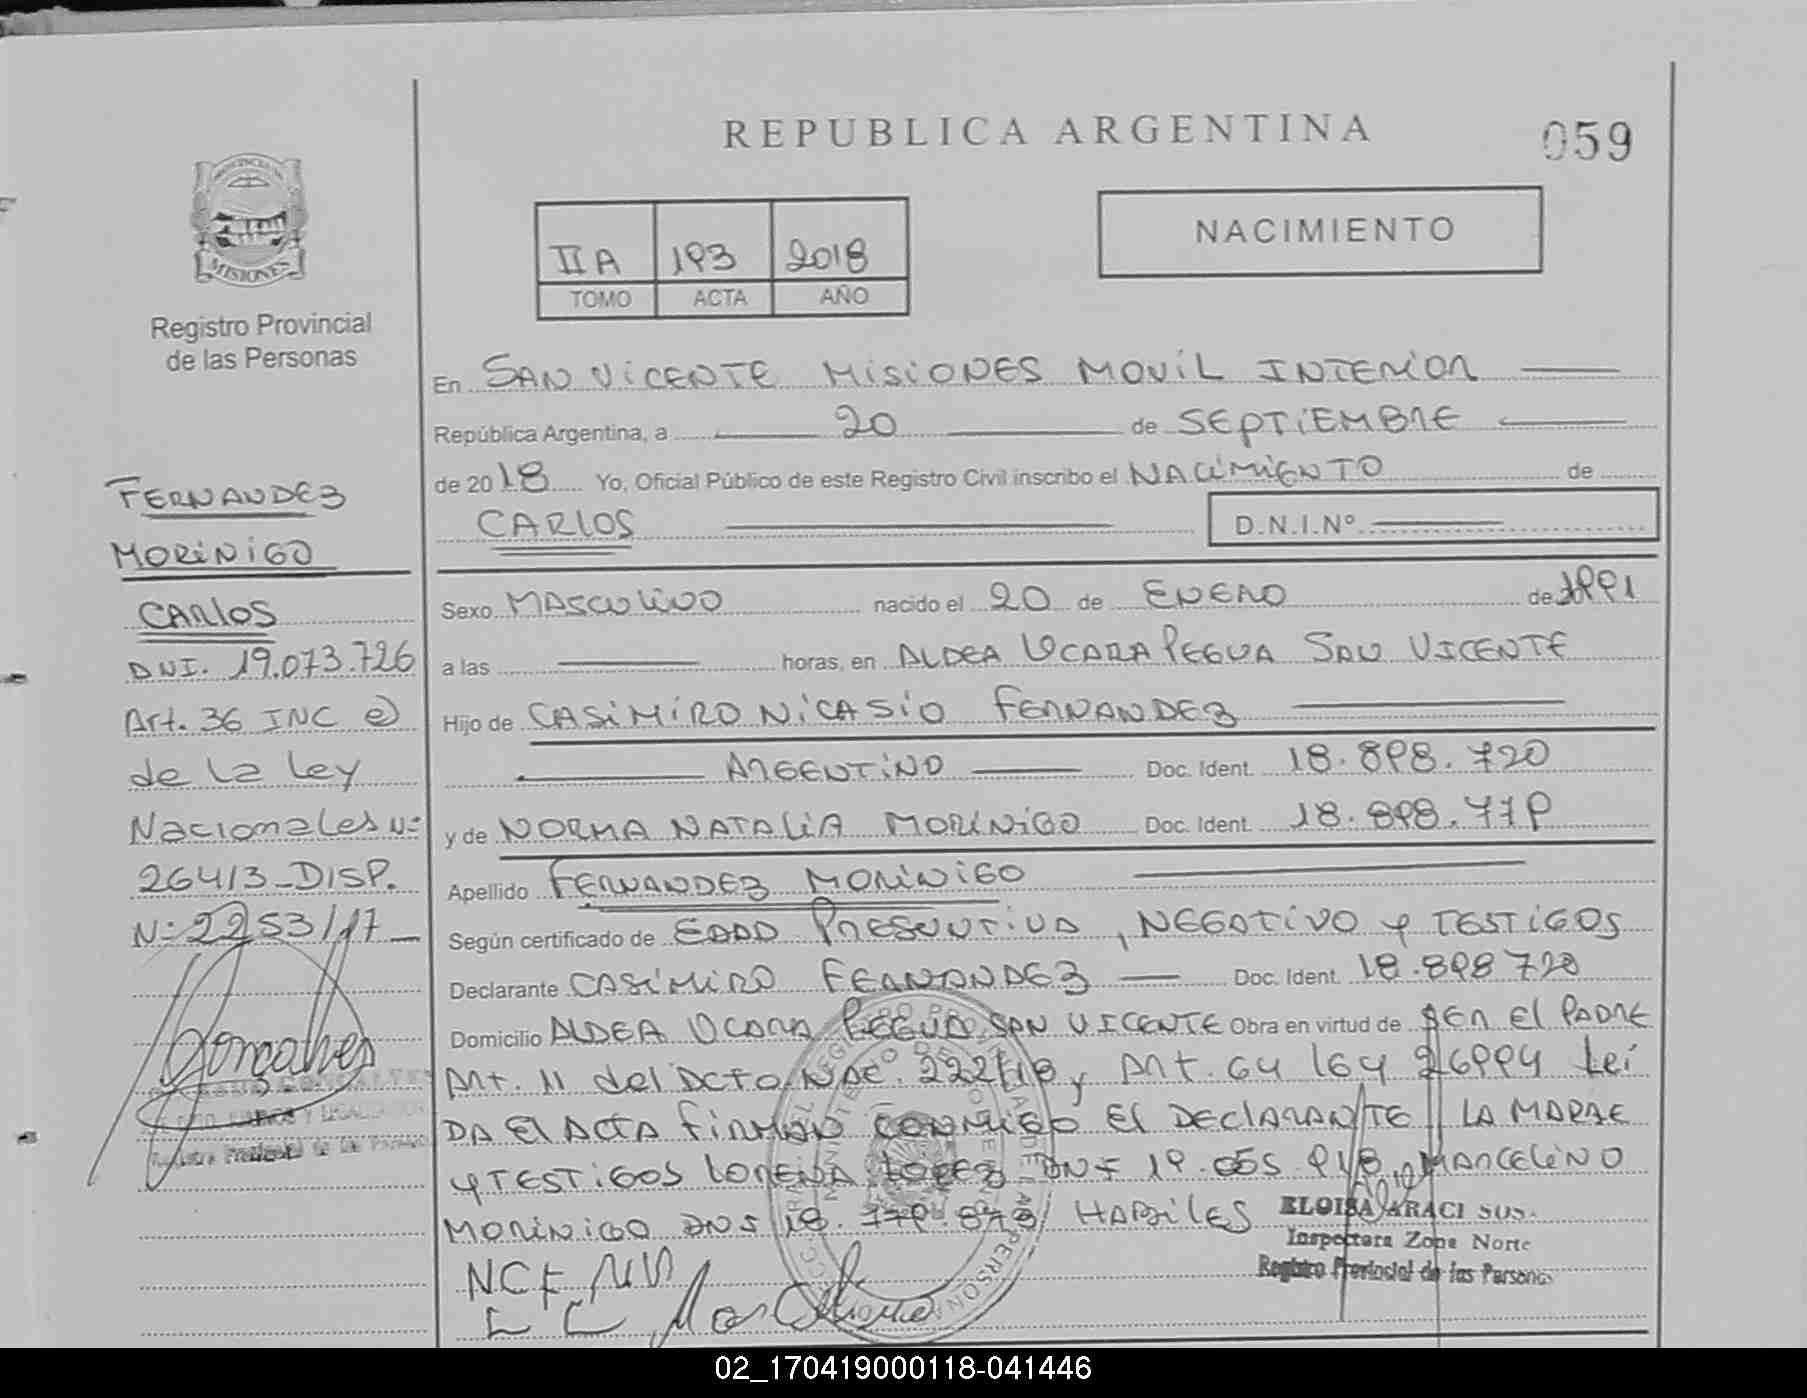 REPUBLICA ARGENTINA
059
NACIMIENTO
IIA 193 2018
TOMO ACTA AÑO
MISIONES
Registro Provincial
de las Personas
FERNANDEZ
MORINIGO
CARLOS
DNI. 19.073.726
Art. 36 INC e)
de la Ley
Nacionales Nº
26413-DISP.
Nº 2253/17
En SAN VICENTE MISIONES MOVIL INTERIOR
República Argentina, a 20 de SEPTIEMBRE
de 2018 Yo, Oficial Público de este Registro Civil inscribo el NACIMIENTO de
CARLOS D.N.I.Nº
Sexo MASCULINO nacido el 20 de ENERO de 1991
a las horas, en ALDEA UCARA PEGUA SAN VICENTE
Hijo de CASIMIRO NICASIO FERNANDEZ
ARGENTINO Doc. Ident. 18.898.720
y de NORMA NATALIA MORINIGO Doc. Ident. 18.898.779
Apellido FERNANDEZ MORINIGO
Según certificado de EDAD PRESUNTIVA, NEGATIVO y TESTIGOS
Declarante CASIMIRO FERNANDEZ Doc. Ident. 18.898720
Domicilio ALDEA UCARA PEGUA SAN VICENTE Obra en virtud de SER El PADRE
Art. 11 del DCTO NAC. 222/18 y Art. 64 ley 26994 Lei
DA El ACTA FIRMAN CONMIGO El DECLARANTE LA MADRE
y TESTIGOS LORENA LOPEZ DNI 19.055.918, MARCELINO
MORINIGO DNI 18.779.873 HABILES
ELOISA ARACI SUS
Inspectora Zona Norte
Registro Provincial de las Personas
NCF NM
LL Marcelino
02_170419000118-041446